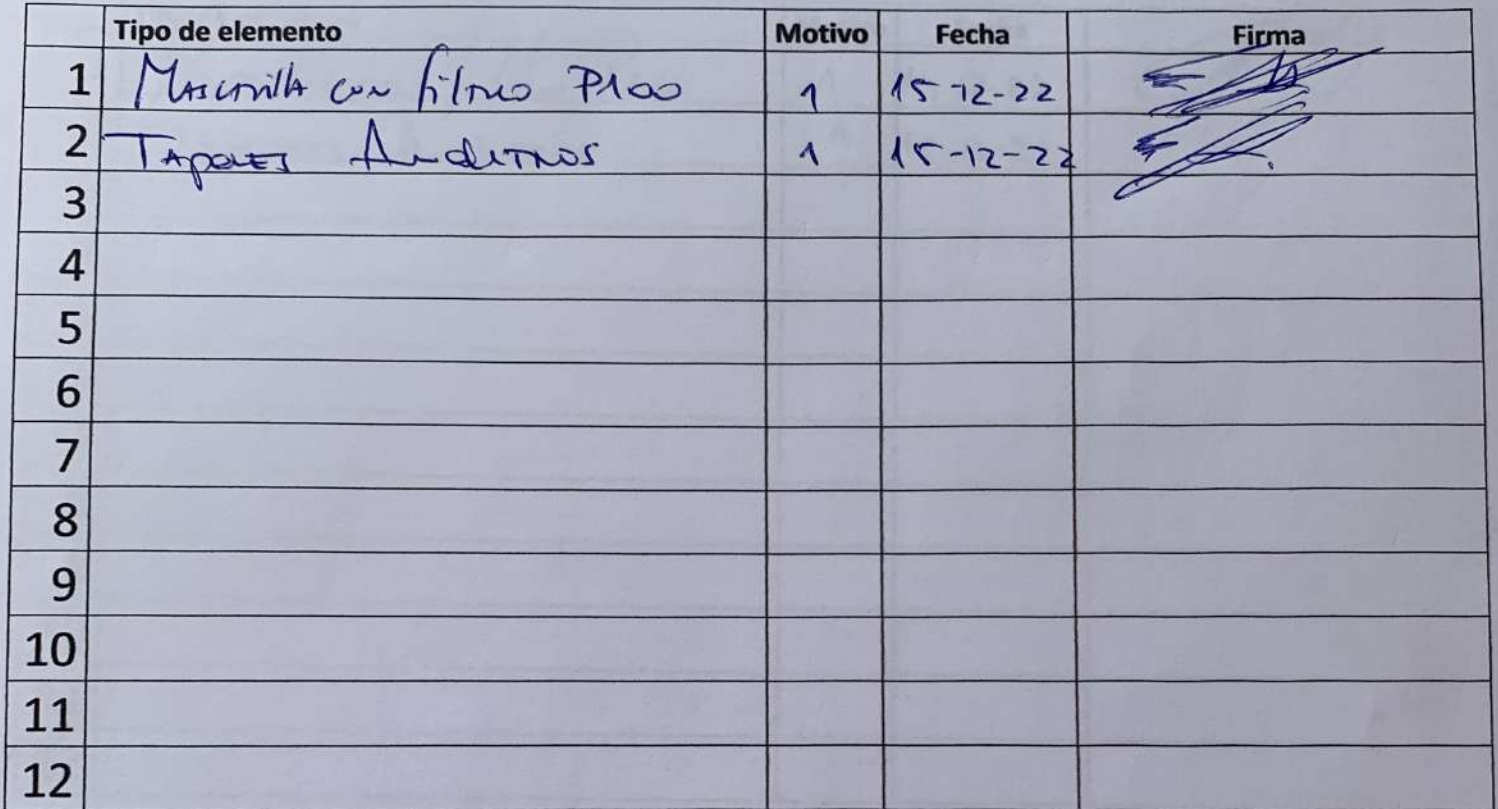 Tipo de elemento Motivo Fecha Firma
1 Mascarilla con filtro P100 1 15-12-22
2 Tapones Auditivos 1 15-12-22
3
4
5
6
7
8
9
10
11
12